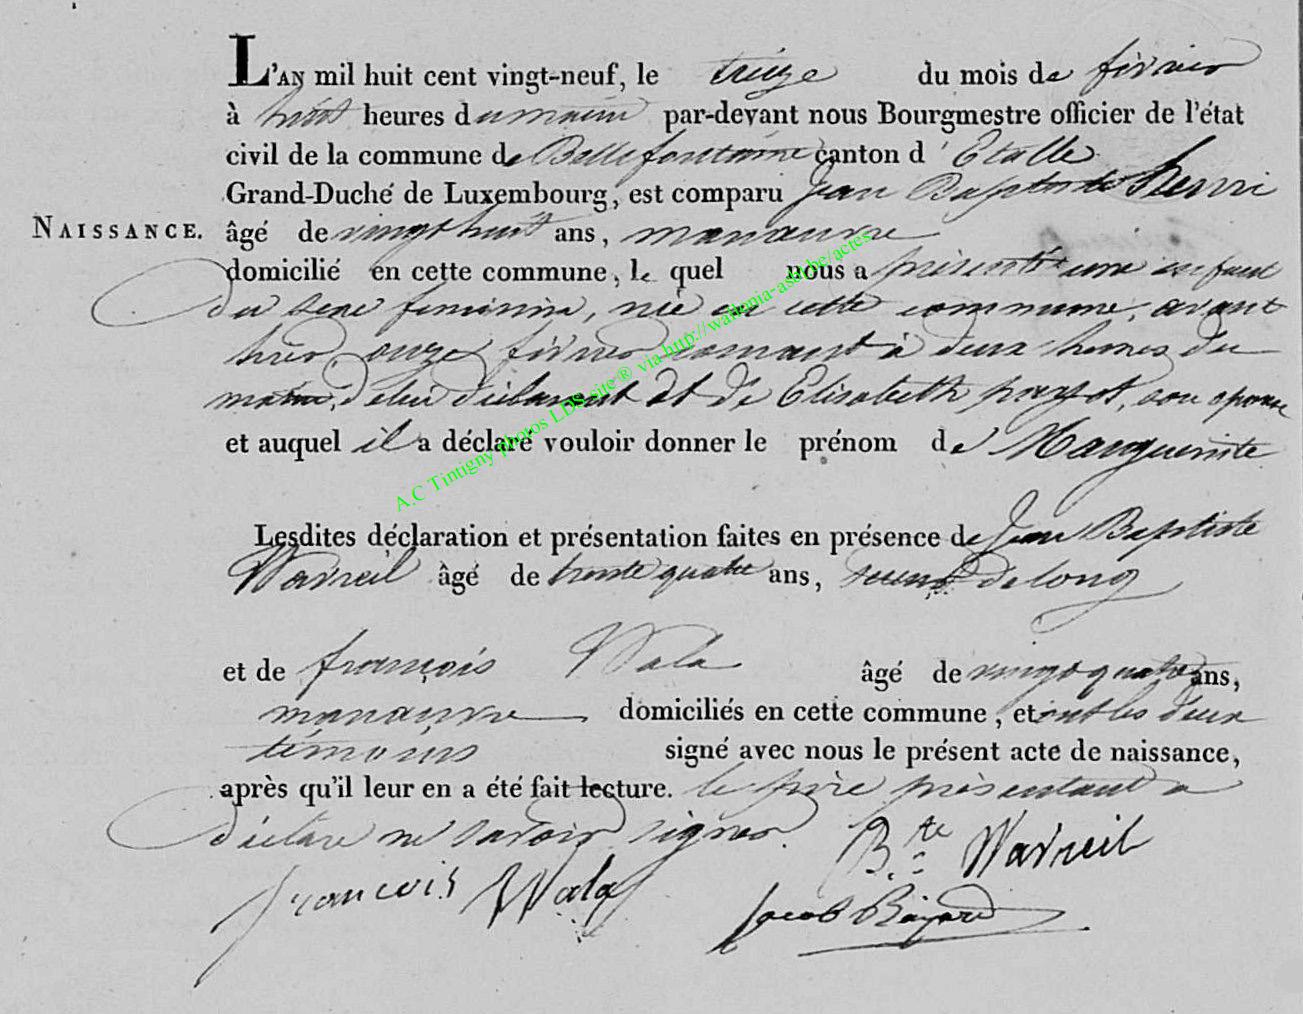 L'AN mil huit cent vingt-neuf, le treize du mois de février
à huit heures du matin par-devant nous Bourgmestre officier de l'état
civil de la commune de Bellefontaine canton d'Etalle
Grand-Duché de Luxembourg, est comparu Jean Baptiste henri
NAISSANCE. âgé de vingt huit ans, manœuvre
domicilié en cette commune, le quel nous a présenté une enfant
du sexe féminin, née en cette commune, avant
hier onze février courant à deux heures du
matin, de lui déclarant et de Elisabeth payot, son épouse
et auquel il a déclaré vouloir donner le prénom de Marguerite
Lesdites déclaration et présentation faites en présence de Jean Baptiste
Wavreil âgé de trente quatre ans, de long
et de françois Wala âgé de vingt quatre ans,
manœuvre domiciliés en cette commune, et ont les deux
témoins signé avec nous le présent acte de naissance,
après qu'il leur en a été fait lecture. le père présentant a
déclaré ne savoir signer.
Bte Wavreil
françois Wala
Jacob Bayard
A.C Tintigny photos LDS site ® via http://wallonia-asbl.be/actes